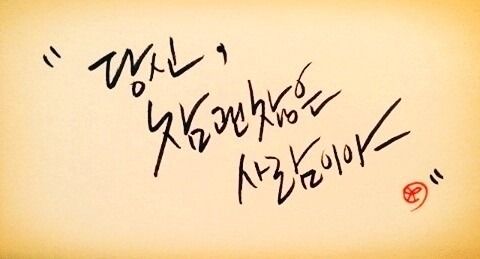 "당신,
참괜찮은
사람이야"